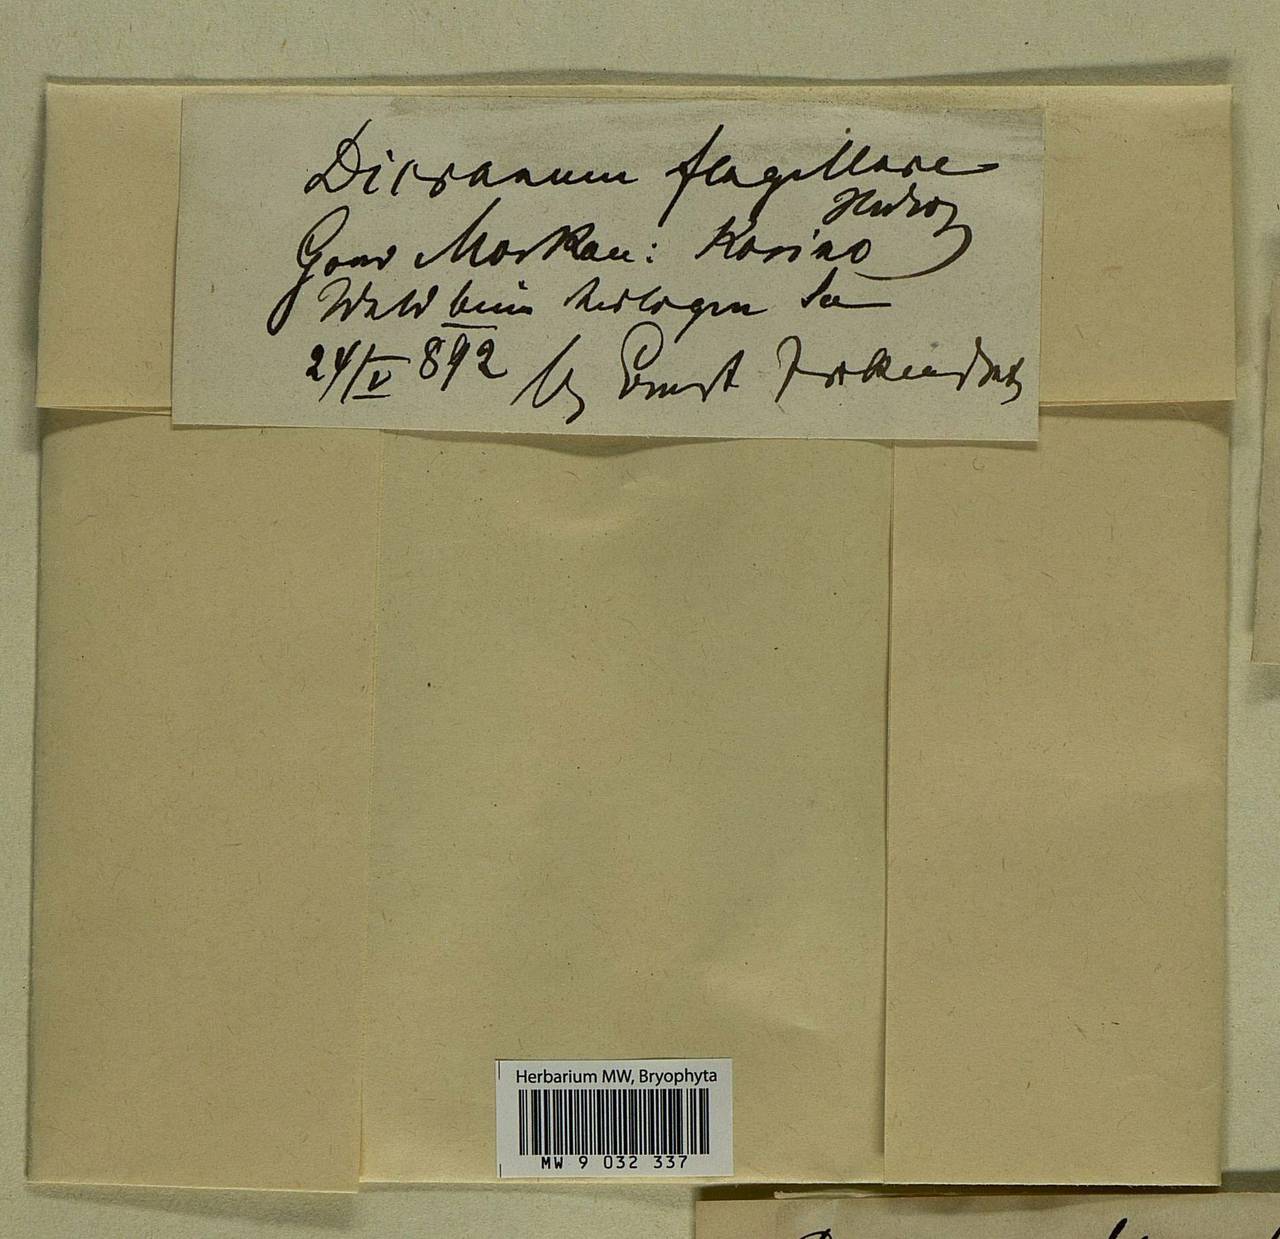 Dicranum flagellare
Hedw.
Gouv Moskau: Kosino
Wald beim heiligen See
24/V 892 lg Ernst Zickendrath
Herbarium MW, Bryophyta
MW 9 032 337